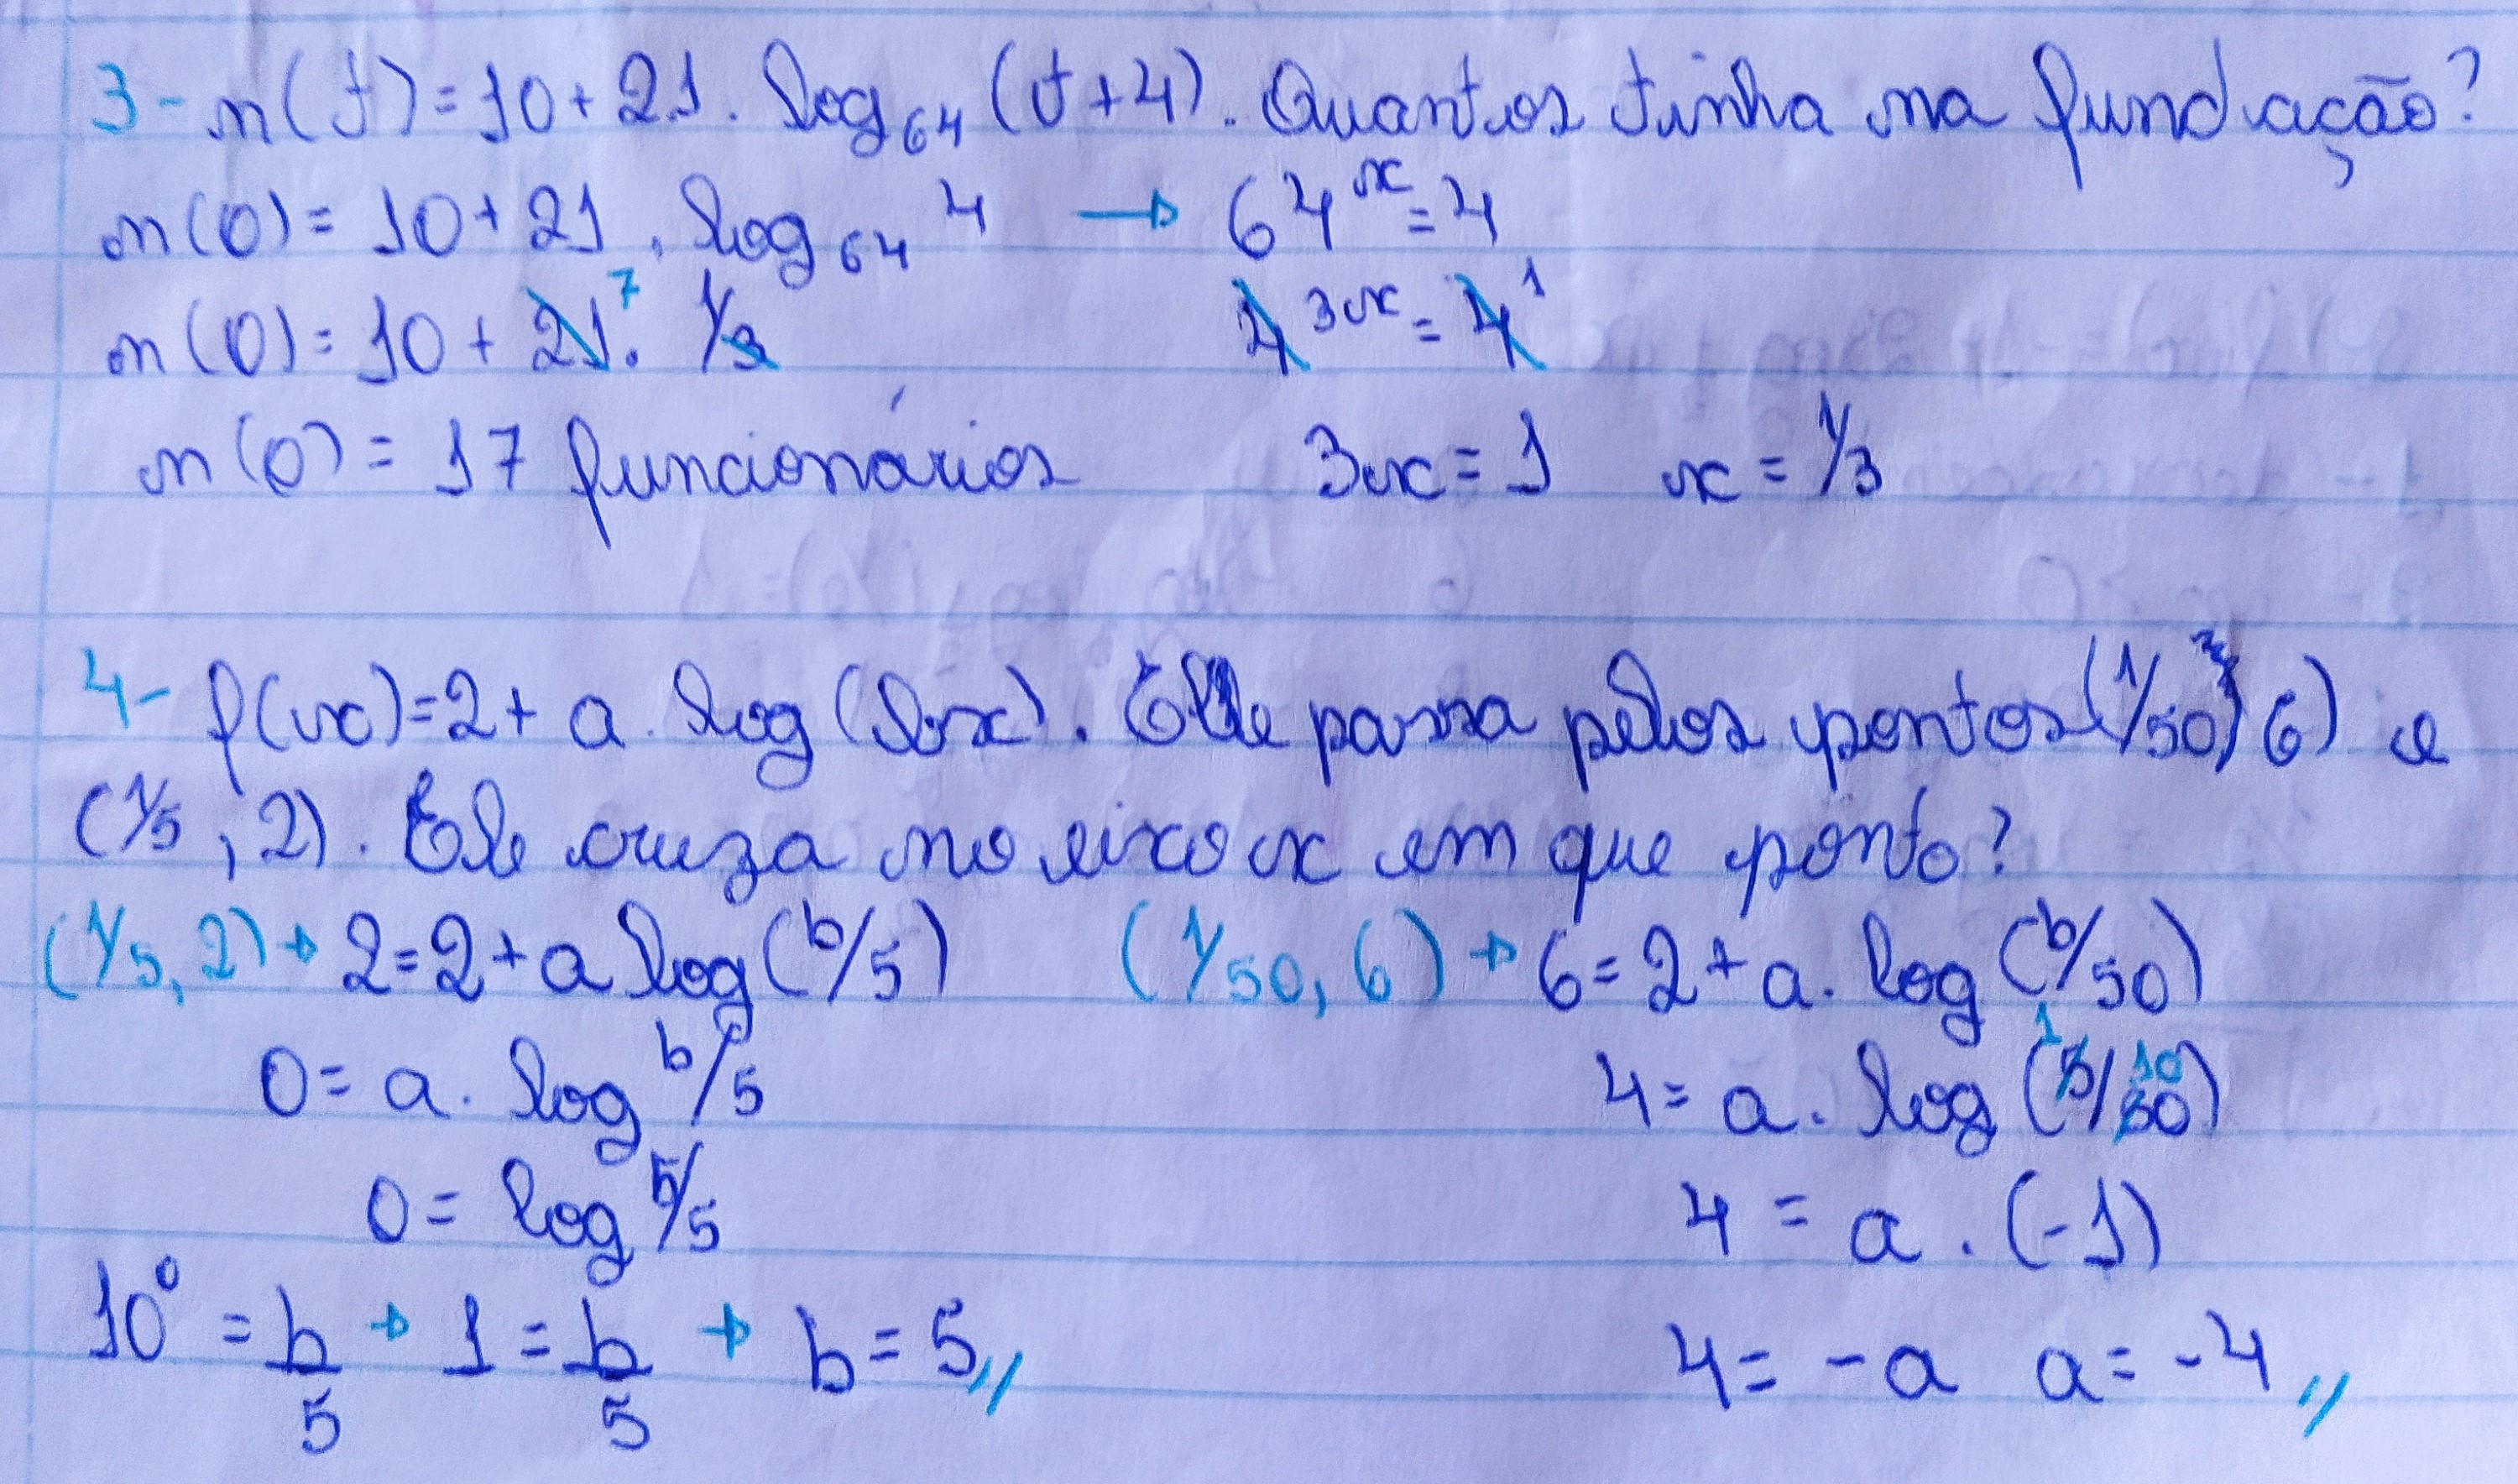 3- n(t) = 10 + 21 . log₆₄ (t + 4) . Quantos tinha na fundação?
n(0) = 10 + 21 . log₆₄ 4 → 64ˣ = 4
n(0) = 10 + 21 . 7 1/3 4³ˣ = 4¹
n(0) = 17 funcionários 3x = 1 x = 1/3
4- f(x) = 2 + a . log (bx) . Ele passa pelos pontos (1/50, 6) e
(1/5 , 2) . Ele cruza no eixo x em que ponto?
(1/5, 2) → 2 = 2 + a log (b/5) (1/50, 6) → 6 = 2 + a . log (b/50)
0 = a . log b/5 4 = a . log (5/50) 1 10
0 = log b/5 4 = a . (-1)
10⁰ = b/5 → 1 = b/5 → b = 5,, 4 = -a a = -4,,